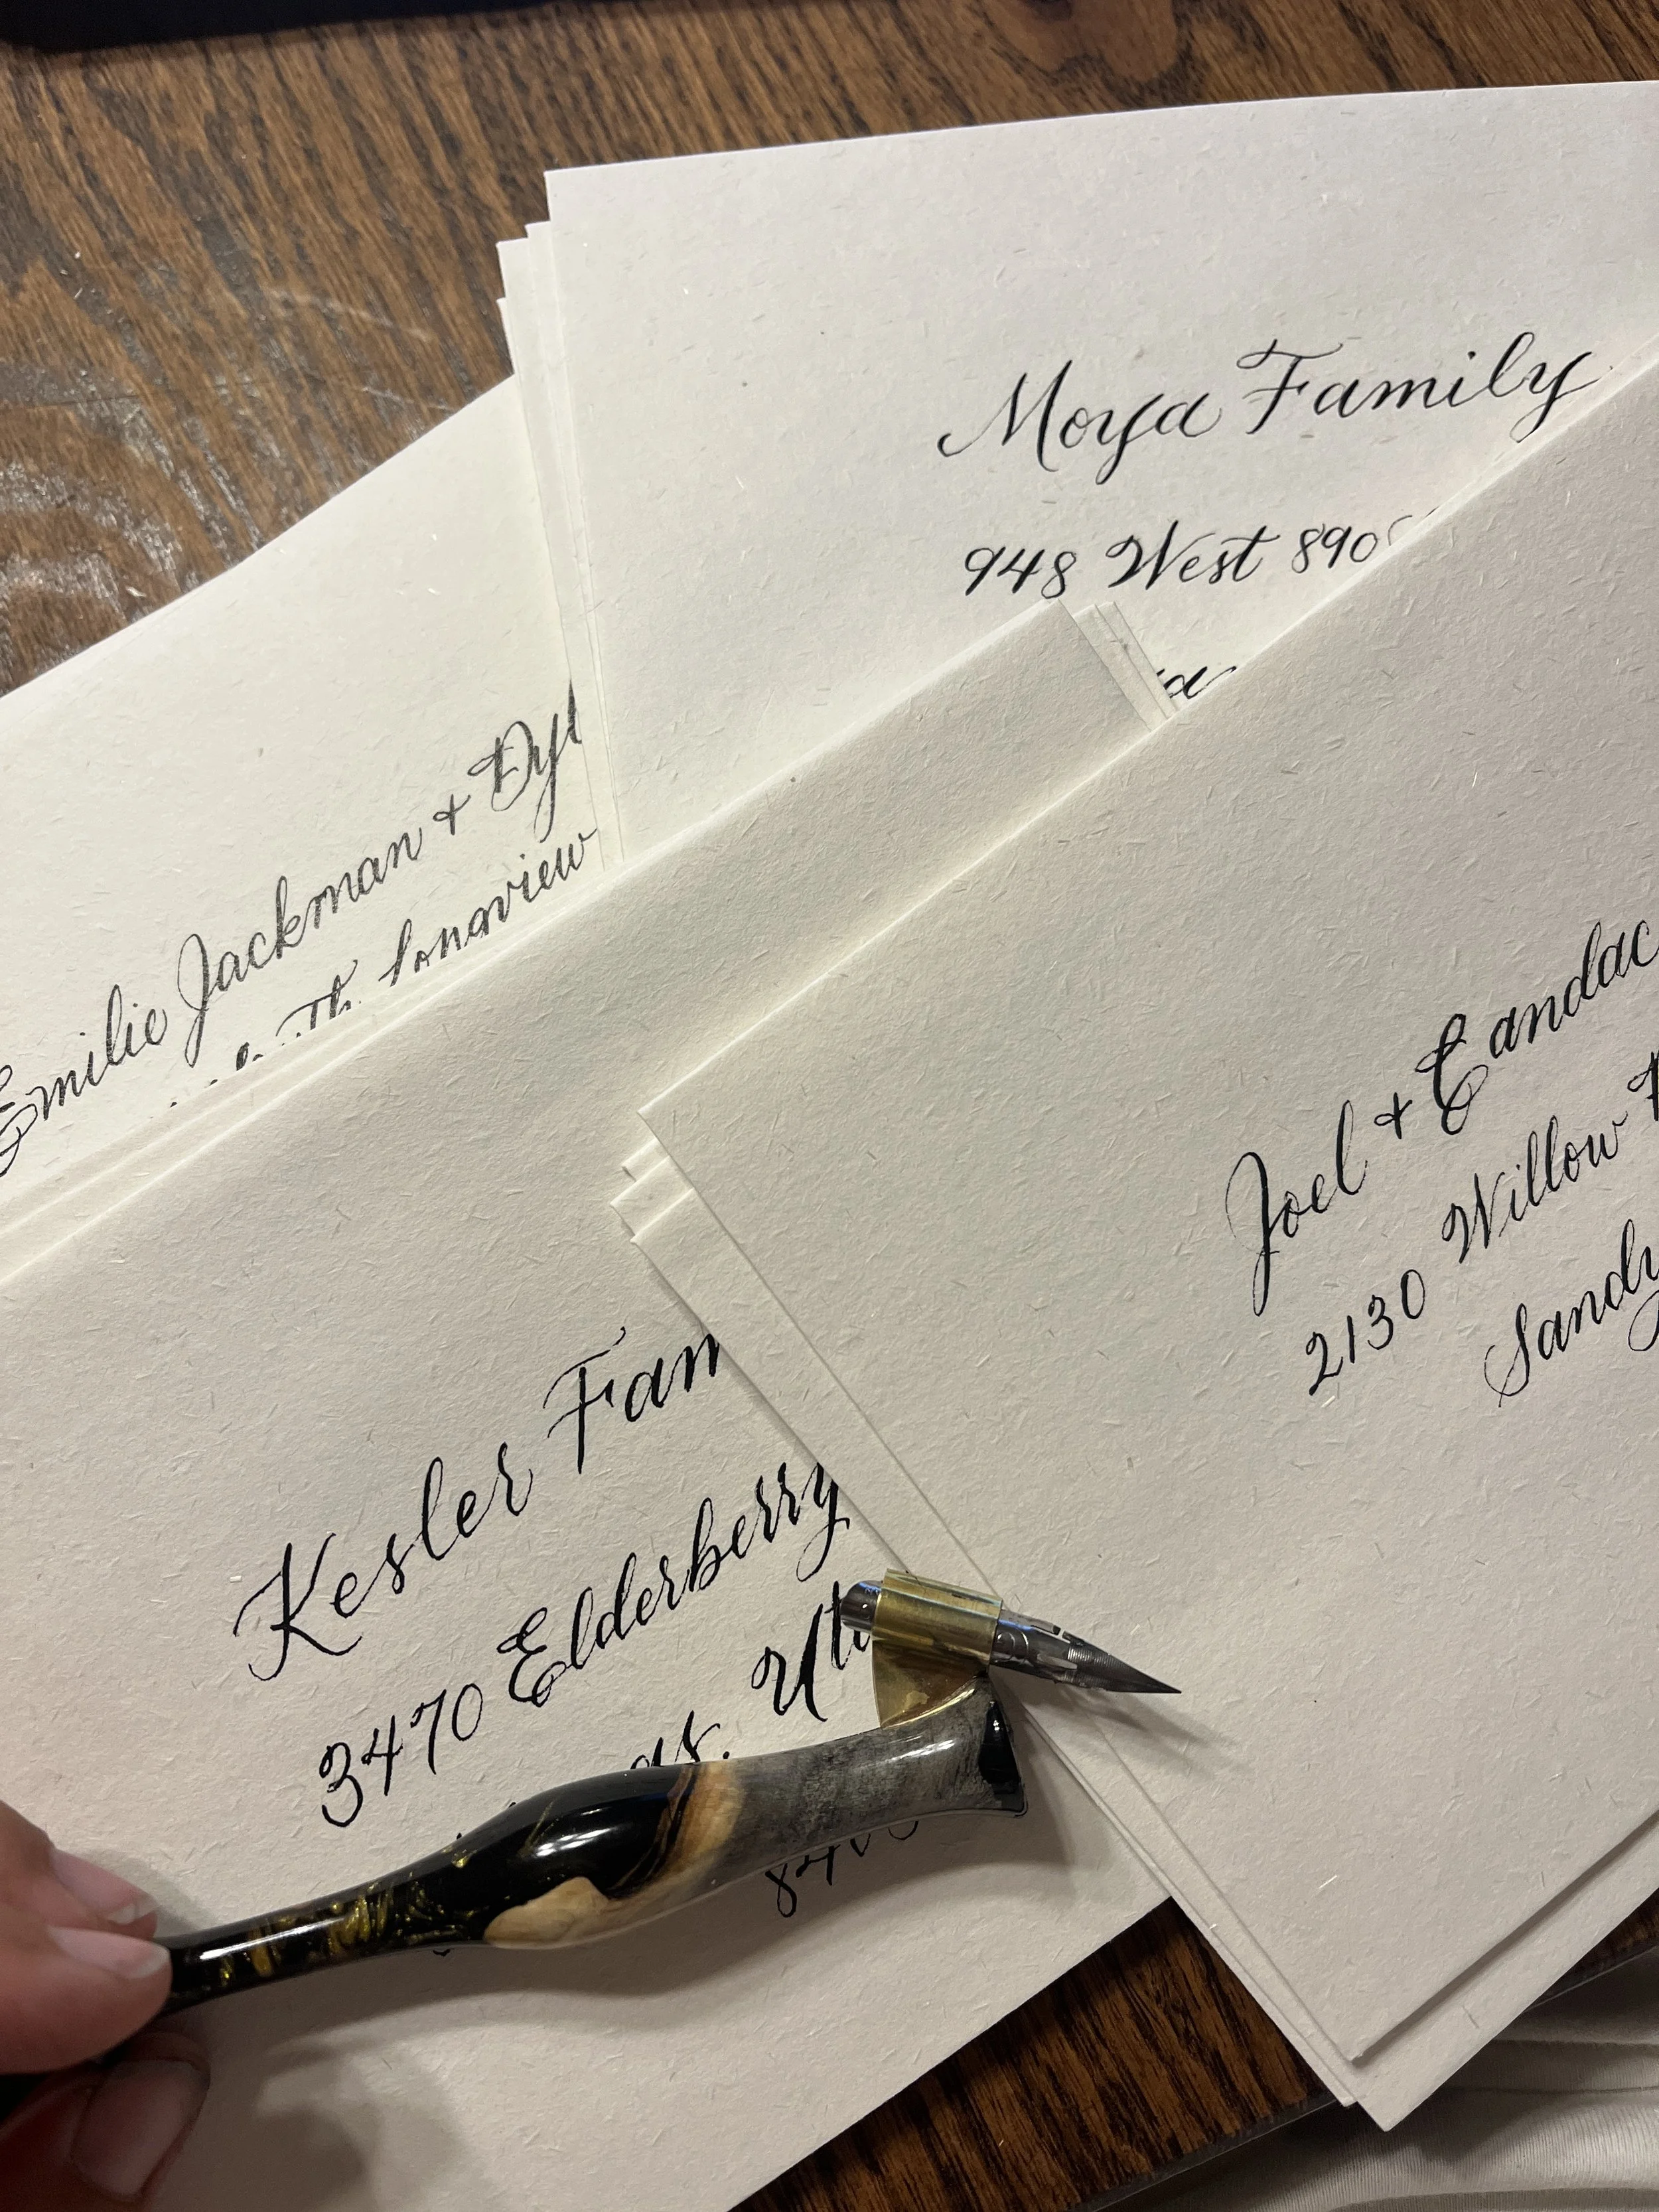 Moya Family
948 West 890
Emilie Jackman + Dyl
Longview
Joel + Candac
2130 Willow
Sandy
Kesler Fam
3470 Elderberry